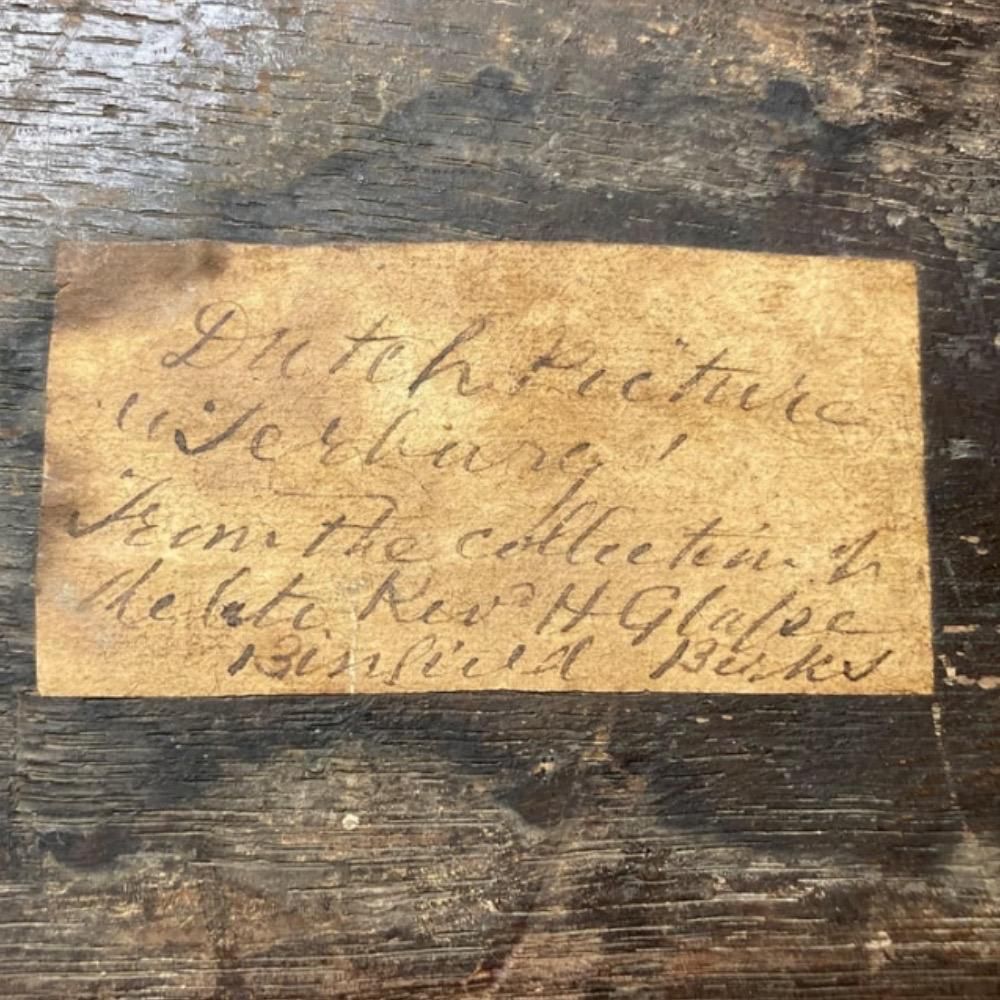 Dutch Picture
"Terburg"
From the collection of
the late Revd H Glasse
Binfield Berks